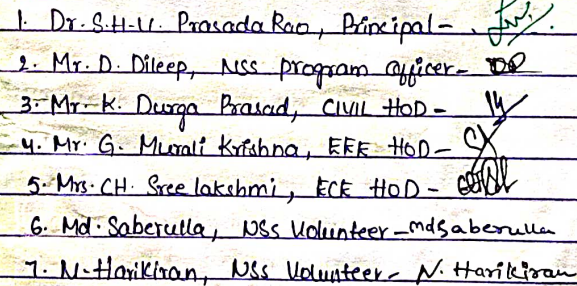 1. Dr. S.H.V. Prasada Rao, Principal -
2. Mr. D. Dileep, NSS program officer -
3. Mr. K. Durga Prasad, CIVIL HOD -
4. Mr. G. Murali Krishna, EEE HOD -
5. Mrs. CH. Sree lakshmi, ECE HOD -
6. Md. Saberulla, NSS Volunteer - mdsaberulla
7. N. Harikiran, NSS Volunteer - N. Harikiran